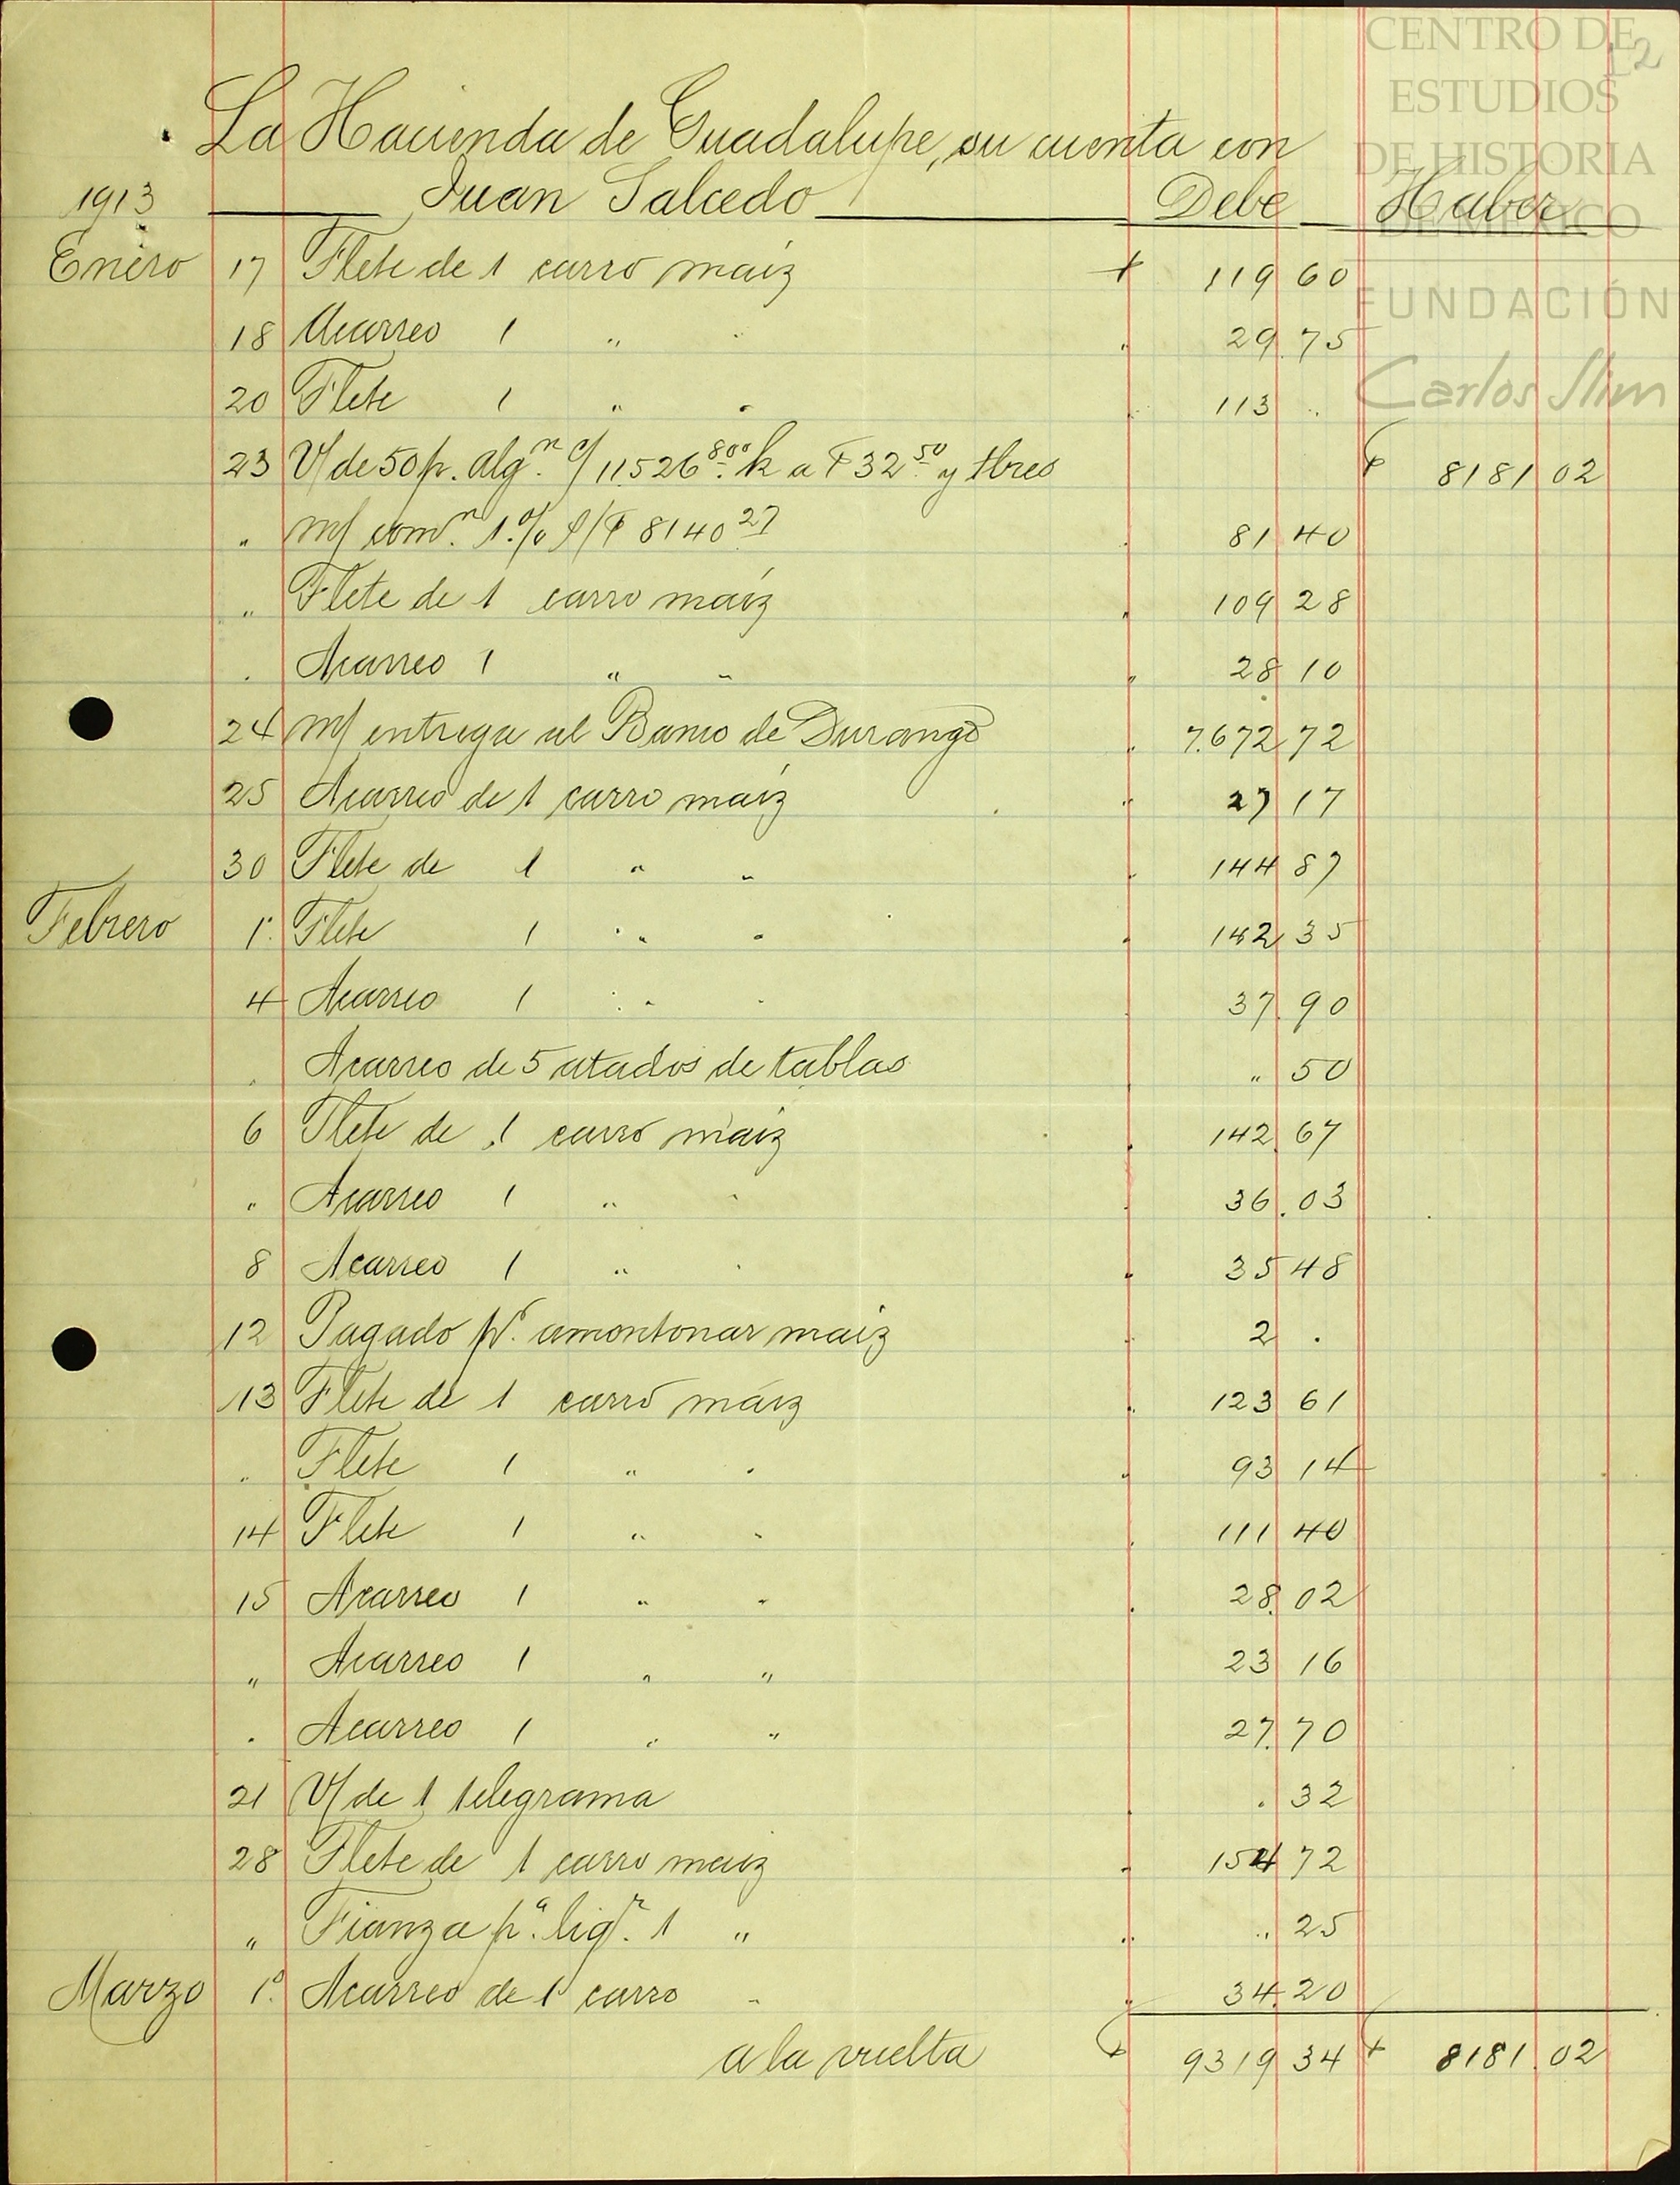 CENTRO DE
ESTUDIOS
DE HISTORIA
DE MEXICO
FUNDACIÓN
Carlos Slim
La Hacienda de Guadalupe, su cuenta con
1913 Juan Salcedo Debe Haber
Enero 17 Flete de 1 carro maíz $ 119 60
18 Acarreo 1 " " " 29.75
20 Flete 1 " " " 113 "
23 V/ de 50 p. algⁿ. c/ 11.526⁸⁰⁰ k a $ 32⁵⁰ y tbres $ 8181 02
" m/ comⁿ. 1.% s/ $ 8140²⁷ " 81 40
" Flete de 1 carro maíz " 109 28
" Acarreo 1 " " " 28 10
24 m/ entrega al Banco de Durango " 7.672 72
25 Acarreo de 1 carro maíz " 27 17
30 Flete de 1 " " " 144 87
Febrero 1º. Flete 1 " " " 142 35
4 Acarreo 1 " " " 37.90
" Acarreo de 5 atados de tablas " " 50
6 Flete de 1 carro maíz " 142.67
" Acarreo 1 " " " 36.03
8 Acarreo 1 " " " 35 48
12 Pagado pʳ. amontonar maíz " 2 "
13 Flete de 1 carro maíz " 123 61
" Flete 1 " " " 93 14
14 Flete 1 " " " 111 40
15 Acarreo 1 " " " 28.02
" Acarreo 1 " " 23 16
" Acarreo 1 " " 27.70
21 V/ de 1 telegrama " " 32
28 Flete de 1 carro maíz " 154 72
" Fianza pª. 1 " " " 25
Marzo 1º. Acarreo de 1 carro " " 34.20
a la vuelta $ 9319 34 $ 8181.02